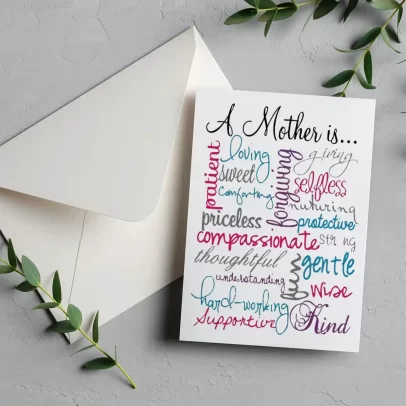 A Mother is...
patient
loving
giving
sweet
forgiving
selfless
comforting
nurturing
priceless
protective
compassionate
strong
thoughtful
gentle
understanding
fun
wise
hard-working
supportive
Kind